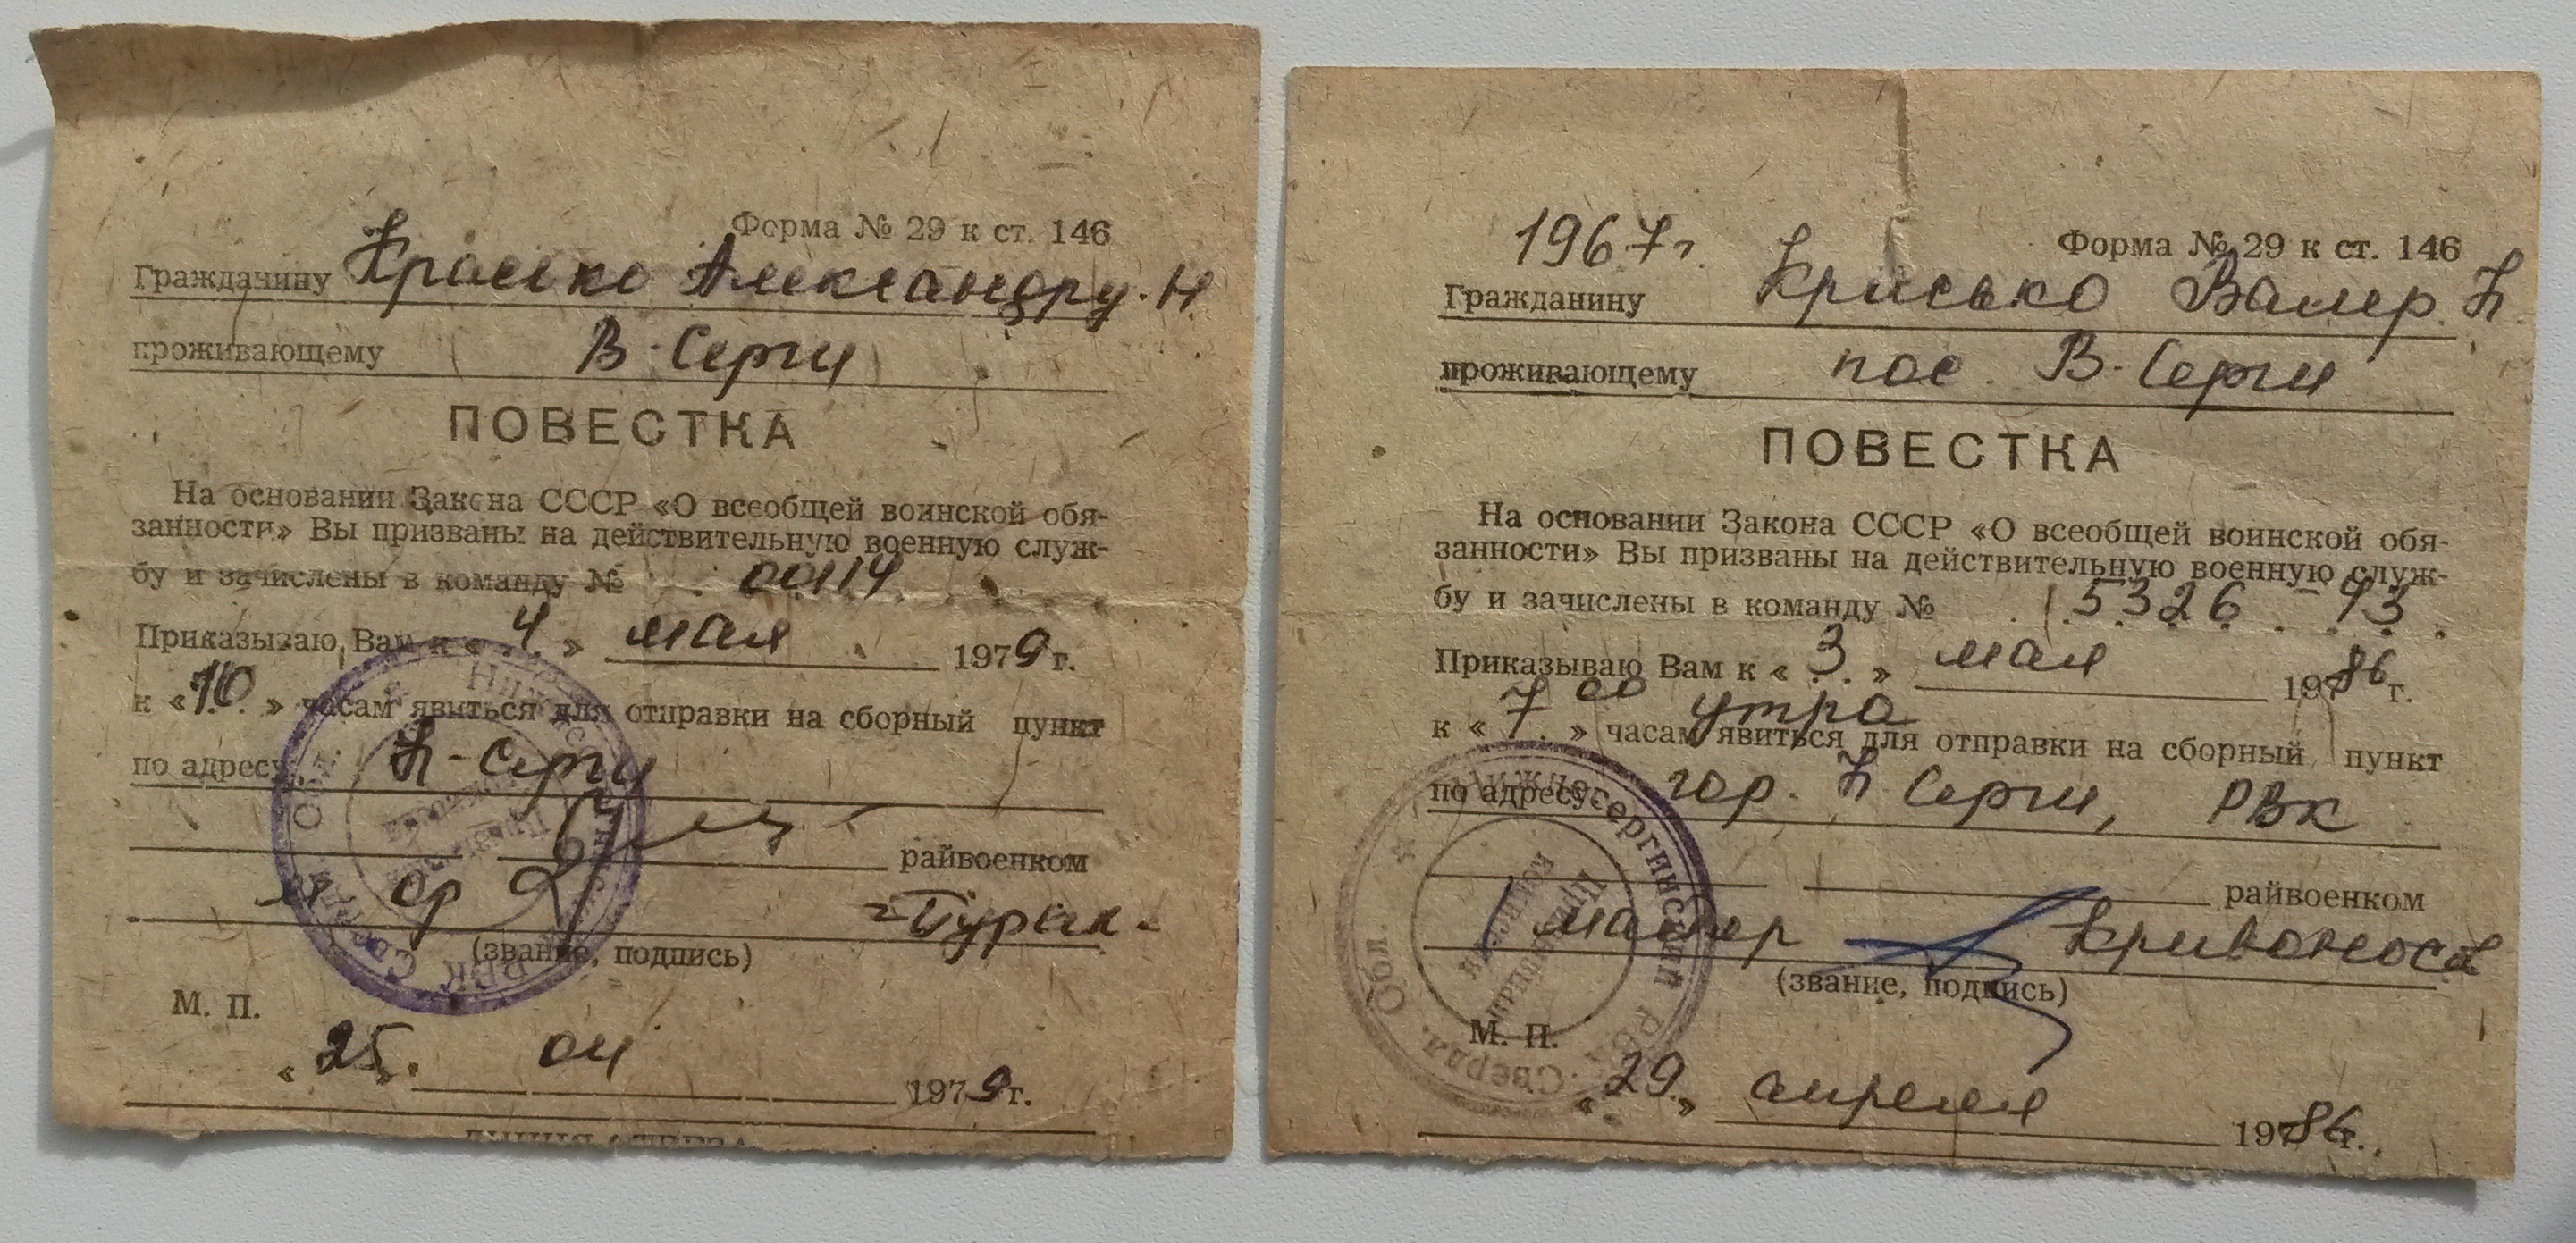 Форма № 29 к ст. 146
Гражданину Красько Александру. Н.
проживающему В-Серги
ПОВЕСТКА
На основании Закона СССР «О всеобщей воинской обя-
занности» Вы призваны на действительную военную служ-
бу и зачислены в команду № 00114
Приказываю Вам к «4.» мая 1979 г.
к «10.» часам явиться для отправки на сборный пункт
по адресу: Н-Серги
райвоенком
(звание, подпись)
М. П.
«25.» 04 1979 г.
1967 г.
Форма № 29 к ст. 146
Гражданину Красько Валер. Н.
проживающему пос. В-Серги
ПОВЕСТКА
На основании Закона СССР «О всеобщей воинской обя-
занности» Вы призваны на действительную военную служ-
бу и зачислены в команду № 5326-93
Приказываю Вам к «3.» мая 1986 г.
к «7 00» часам утра явиться для отправки на сборный пункт
по адресу: гор. Н Серги, РВК
райвоенком
майор Кривоносов
(звание, подпись)
Нижнесергинский РВК Сверdл. Обл.
М. П.
«29.» апреля 1986 г.